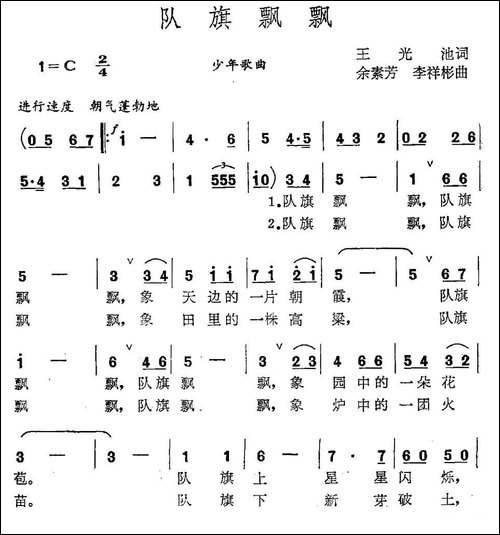 队旗飘飘
1=C 2/4 少年歌曲 王光池词
余素芳 李祥彬曲
进行速度 朝气蓬勃地
(0 5 6 7 |: f i — | 4 · 6 | 5 4·5 | 4 3 2 | 0 2 2 6 |
5·4 3 1 | 2 3 | 1 5 5 5 | i 0) 3 4 | 5 — | 1 v 6 6 |
1.队旗 飘 飘, 队旗
2.队旗 飘 飘, 队旗
5 — | 3 v 3 4 | 5 i i | 7 i 2 i | 5 — | 5 v 6 7 |
飘 飘, 象 天边的 一片朝 霞, 队旗
飘 飘, 象 田里的 一株高 粱, 队旗
i — | 6 v 4 6 | 5 — | 3 v 2 3 | 4 6 6 | 5 4 3 2 |
飘 飘, 队旗 飘 飘, 象 园中的 一朵花
飘 飘, 队旗 飘 飘, 象 炉中的 一团火
3 — | 3 — | 1 1 | 6 — | 7 · 5 | 6 0 5 0 |
苞。 队旗 上 星星闪烁,
苗。 队旗 下 新芽破土,